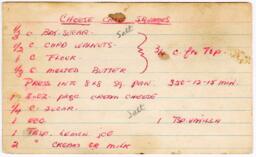 CHEESE CAKE SQUARES
1/3 C BR. SUGAR Salt
1/2 C CHPD WALNUTS
1 C FLOUR 3/4 C. for Top.
1/3 C MELTED BUTTER
PRESS INTO 8X8 SQ. PAN. 350-12-15 MIN.
1 8-OZ. PKGE CREAM CHEESE
1/4 C. SUGAR. Salt
1 EGG 1 Tsp. Vanilla
1 TBSP. LEMON JCE
2 " CREAM OR MILK